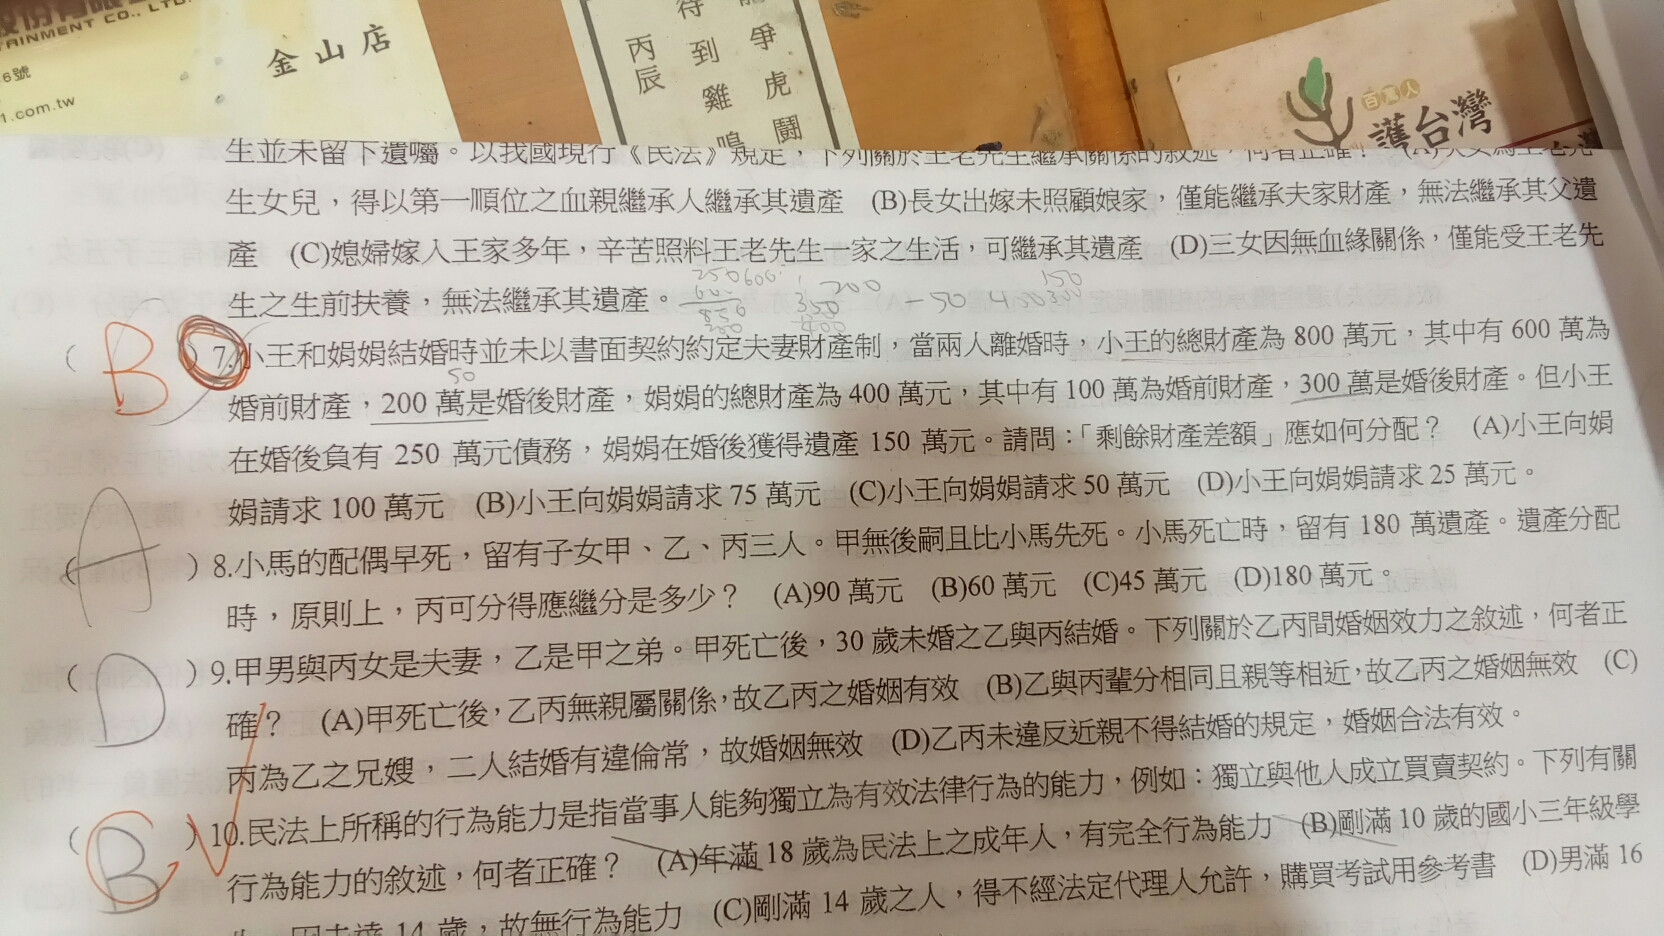 金山店
6號
1.com.tw
TAINMENT CO., LTD.
丙辰
待到雞鳴
爭虎鬪
百萬人
護台灣
生並未留下遺囑。以我國現行《民法》規定，下列關於王老先生繼承關係的敘述，何者正確？ (A)大女為王老先
生女兒，得以第一順位之血親繼承人繼承其遺產 (B)長女出嫁未照顧娘家，僅能繼承夫家財產，無法繼承其父遺
產 (C)媳婦嫁入王家多年，辛苦照料王老先生一家之生活，可繼承其遺產 (D)三女因無血緣關係，僅能受王老先
生之生前扶養，無法繼承其遺產。
250 600 200 150
350
850
400
( B )7.小王和娟娟結婚時並未以書面契約約定夫妻財產制，當兩人離婚時，小王的總財產為 800 萬元，其中有 600 萬為
50
婚前財產，200 萬是婚後財產，娟娟的總財產為 400 萬元，其中有 100 萬為婚前財產，300 萬是婚後財產。但小王
在婚後負有 250 萬元債務，娟娟在婚後獲得遺產 150 萬元。請問：「剩餘財產差額」應如何分配？ (A)小王向娟
娟請求 100 萬元 (B)小王向娟娟請求 75 萬元 (C)小王向娟娟請求 50 萬元 (D)小王向娟娟請求 25 萬元。
( A )8.小馬的配偶早死，留有子女甲、乙、丙三人。甲無後嗣且比小馬先死。小馬死亡時，留有 180 萬遺產。遺產分配
時，原則上，丙可分得應繼分是多少？ (A)90 萬元 (B)60 萬元 (C)45 萬元 (D)180 萬元。
( D )9.甲男與丙女是夫妻，乙是甲之弟。甲死亡後，30 歲未婚之乙與丙結婚。下列關於乙丙間婚姻效力之敘述，何者正
確？ (A)甲死亡後，乙丙無親屬關係，故乙丙之婚姻有效 (B)乙與丙輩分相同且親等相近，故乙丙之婚姻無效 (C)
丙為乙之兄嫂，二人結婚有違倫常，故婚姻無效 (D)乙丙未違反近親不得結婚的規定，婚姻合法有效。
( B )10.民法上所稱的行為能力是指當事人能夠獨立為有效法律行為的能力，例如：獨立與他人成立買賣契約。下列有關
行為能力的敘述，何者正確？ (A)年滿 18 歲為民法上之成年人，有完全行為能力 (B)剛滿 10 歲的國小三年級學
因未達 14 歲，故無行為能力 (C)剛滿 14 歲之人，得不經法定代理人允許，購買考試用參考書 (D)男滿 16